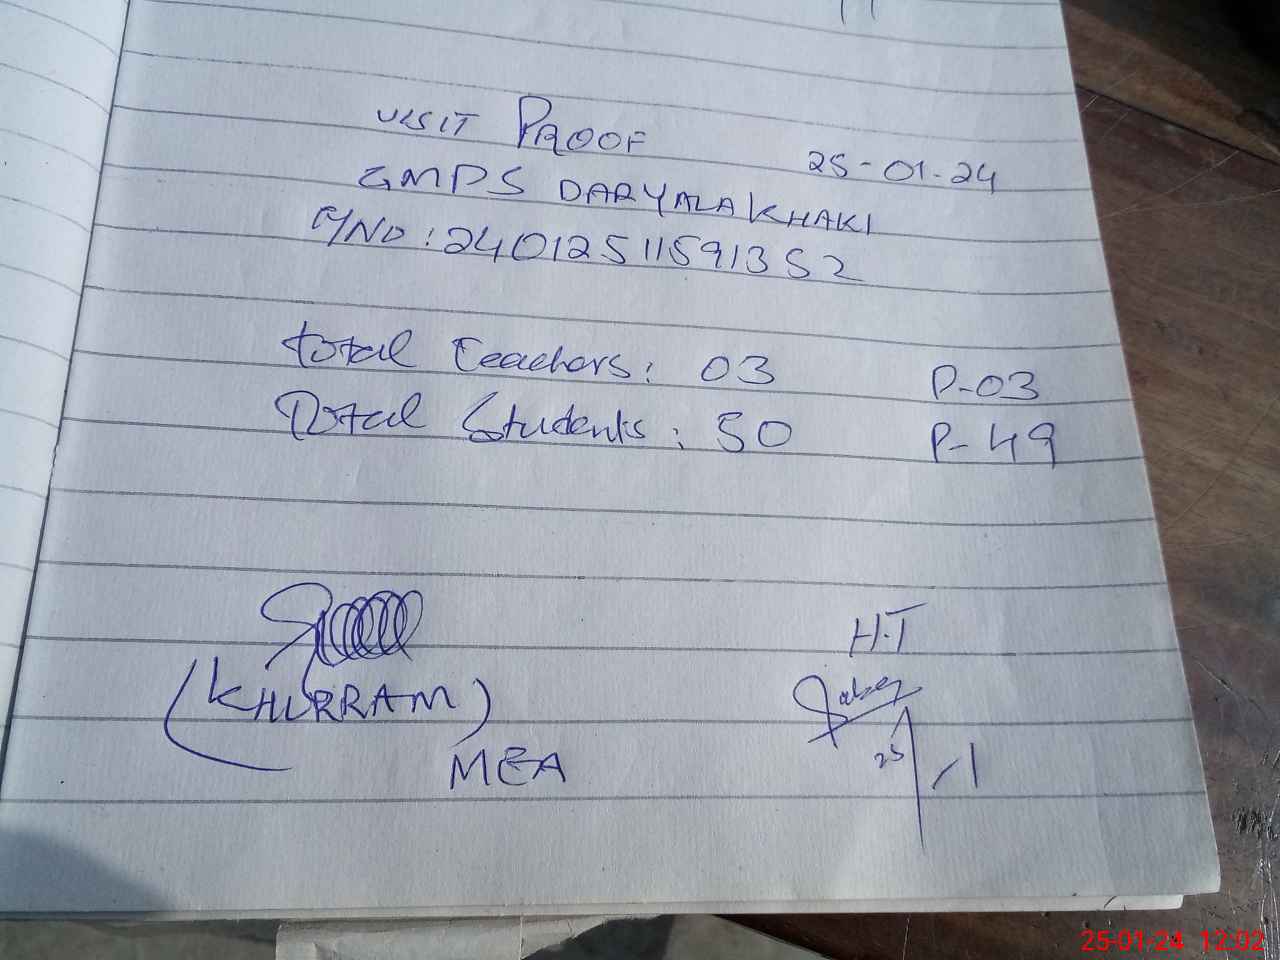 VISIT PROOF
25-01-24
GMPS DARYALAKHAKI
P/NO: 24012511591352
total teachers: 03 P-03
Total Students: 50 P-49
(KHURRAM)
MEA
H.T
25/1
25-01-24 12:02